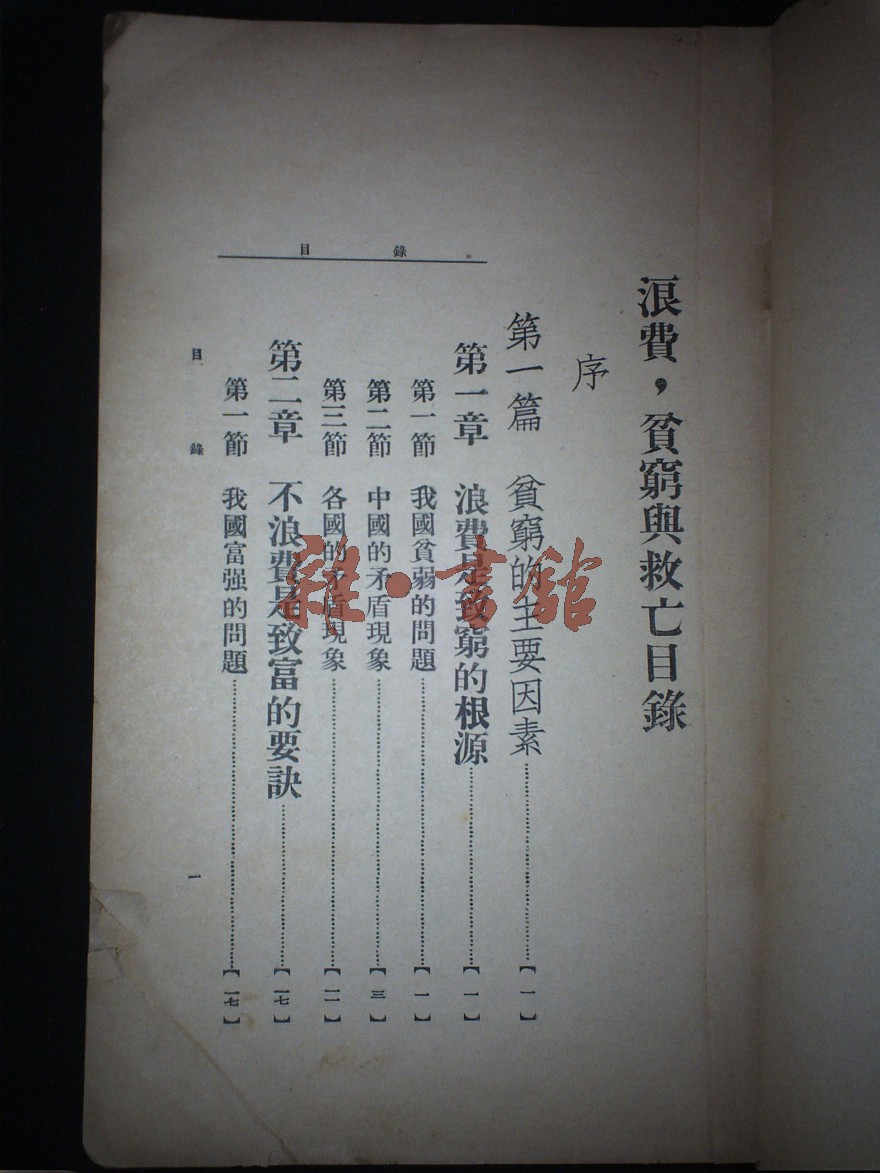 浪費，貧窮與救亡目錄
序
第一篇　貧窮的主要因素……【一】
第一章　浪費是致窮的根源……【一】
第一節　我國貧弱的問題……【一】
第二節　中國的矛盾現象……【三】
第三節　各國的矛盾現象……【一一】
第二章　不浪費是致富的要訣……【一七】
第一節　我國富强的問題……【一七】
目錄
目錄　一
雜·書館